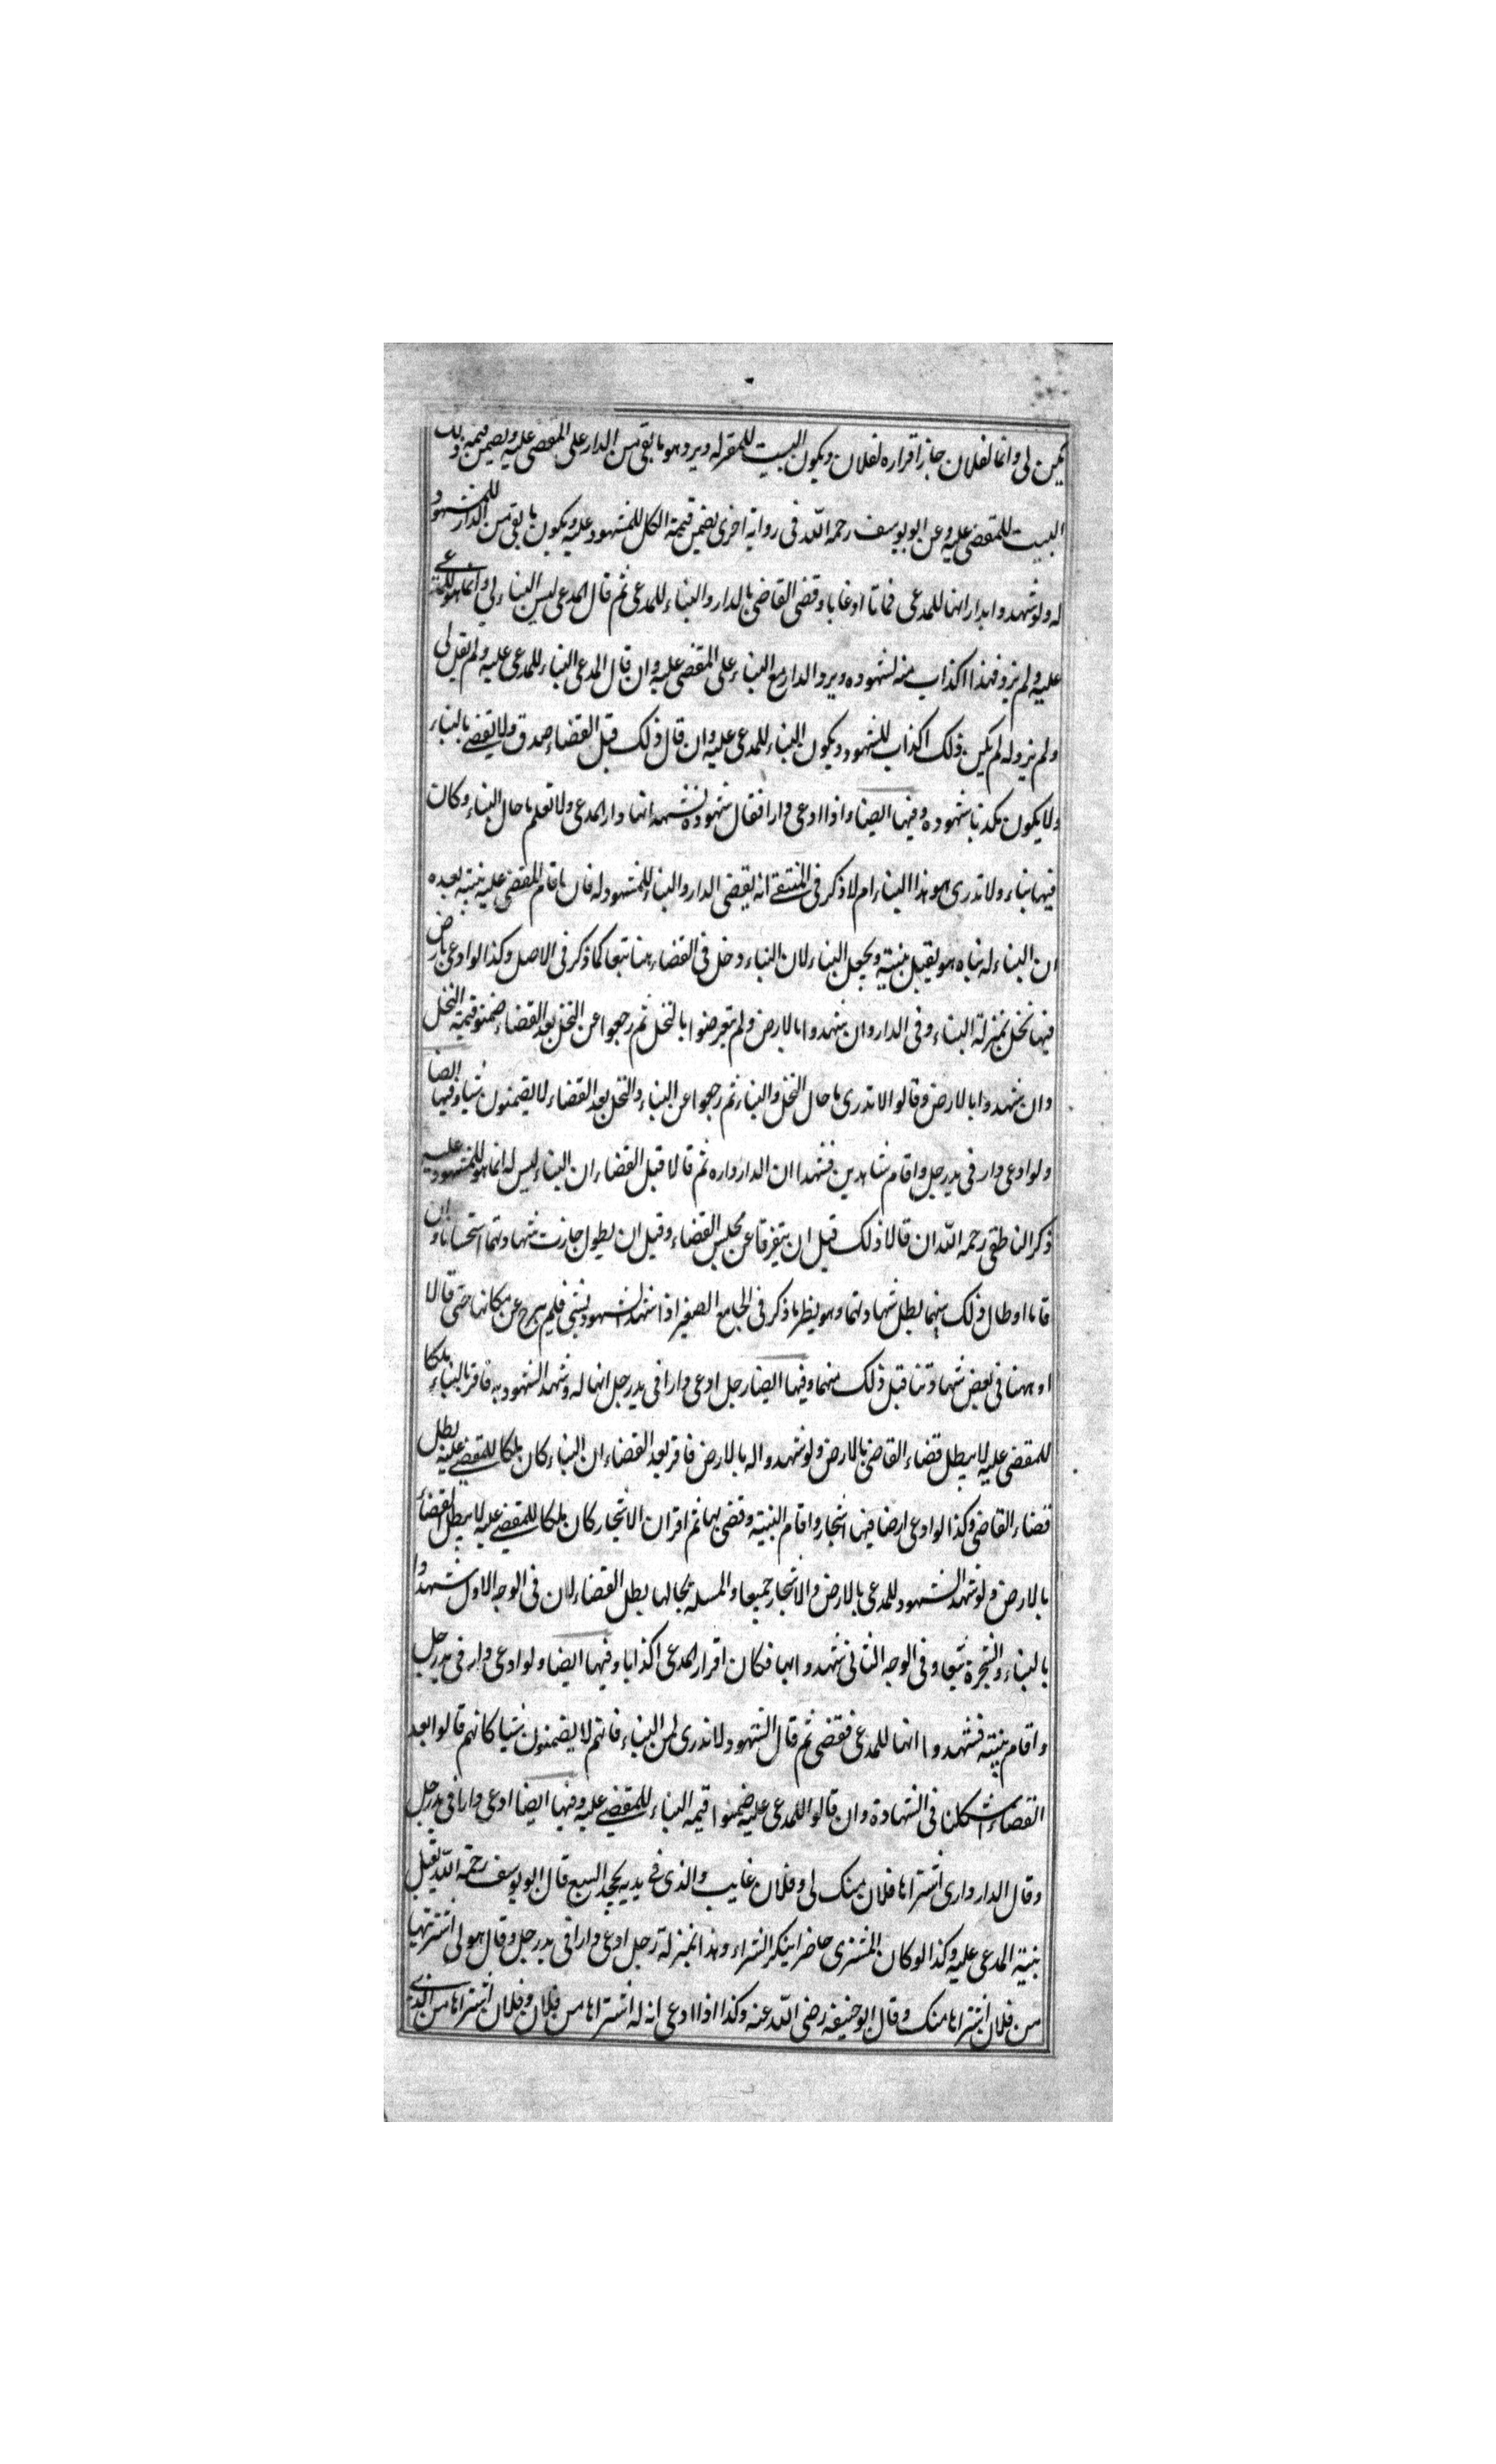 يكن لى وانما لفلان جاز اقراره لفلان ويكون البيت للمقر له ويرد هو ما بقى من الدار على المقضى عليه ويضمن قيمة ذلك
البيت للمقضى عليه وعن ابو يوسف رحمه الله فى رواية اخرى يضمن قيمة الكل للمشهود عليه ويكون ما بقى من الدار للمشهود
له ولو شهدوا بدار انها للمدعى فماتا او غابا وقضى القاضى بالدار والبناء للمدعى ثم قال المدعى ليس البناء لى وانما هو للمدعى
عليه ولم يزد فهذا اكذاب منه لشهوده ويرد الدار مع البناء على المقضى عليه وان قال المدعى البناء للمدعى عليه ولم يقل لى
ولم يزد له لم يكن ذلك اكذاب للشهود ويكون البناء للمدعى عليه وان قال ذلك قبل القضاء صدق ولا يقضى بالبناء
ولا يكون مكذبا شهوده وفيها ايضا واذا ادعى دارا فقال شهوده نشهد انها دار المدعى ولا نعلم ما حال البناء وكان
فيها بناء ولا ندرى هو هذا البناء ام لا ذكر فى المنتقى انه يقضى الدار والبناء للمشهود له فان اقام المقضى عليه بينة بعده
ان البناء له بناه هو يقبل بينته ويجعل البناء لان البناء دخل فى القضاء هنا تبعا كما ذكر فى الاصل وكذا لو ادعى بارض
فيها نخل بمنزلة البناء وفى الدار وان شهدوا بالارض ولم يتعرضوا بالنخل ثم رجعوا عن النخل بعد القضاء ضمنو قيمة النخل
وان شهدوا بالارض وقالوا لا ندرى ما حال النخل والبناء ثم رجعوا عن البناء والنخل بعد القضاء لا يضمنون شيا وفيها ايضا
ولو ادعى دار فى يد رجل واقام شاهدين فشهدا ان الدار داره ثم قالا قبل القضاء ان البناء ليس له انما هو للمشهود عليه
ذكر الناطقى رحمه الله ان قالا ذلك قبل ان يتفرقا عن مجلس القضاء وقبل ان يطول جازت شهادتهما استحسانا وان
قاما او طال ذلك بينهما بطل شهادتهما وهو نظير ما ذكر فى الجامع الصغير اذا شهد الشهود بشى فلم يبرح عن مكانها حتى قالا
اوهمنا فى بعض شهادتنا قبل ذلك منهما وفيها ايضا رجل ادعى دارا فى يد رجل انها له وشهد الشهود به فاقر بالبناء ملكا
للمقضى عليه لا يبطل قضاء القاضى بالارض ولو شهدوا له بالارض فاقر بعد القضاء ان البناء كان ملكا للمقضى عليه بطل
قضاء القاضى وكذا لو ادعى ارضا فيها اشجار واقام البينة وقضى بها ثم اقر ان الاشجار كان ملكا للمقضى عليه لا يبطل القضاء
بالارض ولو شهد الشهود للمدعى بالارض والاشجار جميعا والمسلة بحالها بطل القضاء لان فى الوجه الاول شهدوا
بالبناء والشجرة تبعا وفى الوجه الثانى شهدوا بها فكان اقرار المدعى اكذابا وفيها ايضا ولو ادعى دار فى يد رجل
واقام بينة فشهدوا انها للمدعى فقضى ثم قال الشهود لا ندرى لمن البناء فانهم لا يضمنون شيا كانهم قالوا بعد
القضاء شككنا فى الشهادة وان قالوا للمدعى عليه ضمنوا قيمه البناء للمقضى عليه وفيها ايضا ادعى دارا فى يد رجل
وقال الدار دارى اشتراها فلان منك لى وفلان غايب والذى فى يديه يجحد البيع قال ابو يوسف رحمة الله يقبل
بينة المدعى عليه وكذا لو كان المشترى حاضرا ينكر الشراء وهذا بمنزلة رجل ادعى دارا فى يد رجل وقال هو لى اشتريتها
من فلان اشتراها منك وقال ابو حنيفه رضى الله عنه وكذا اذا ادعى انه له اشتراها من فلان وفلان اشتراها من الذى